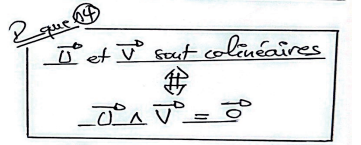 R que 04
U⃗ et V⃗ sont colinéaires
⇕
U⃗ ∧ V⃗ = O⃗